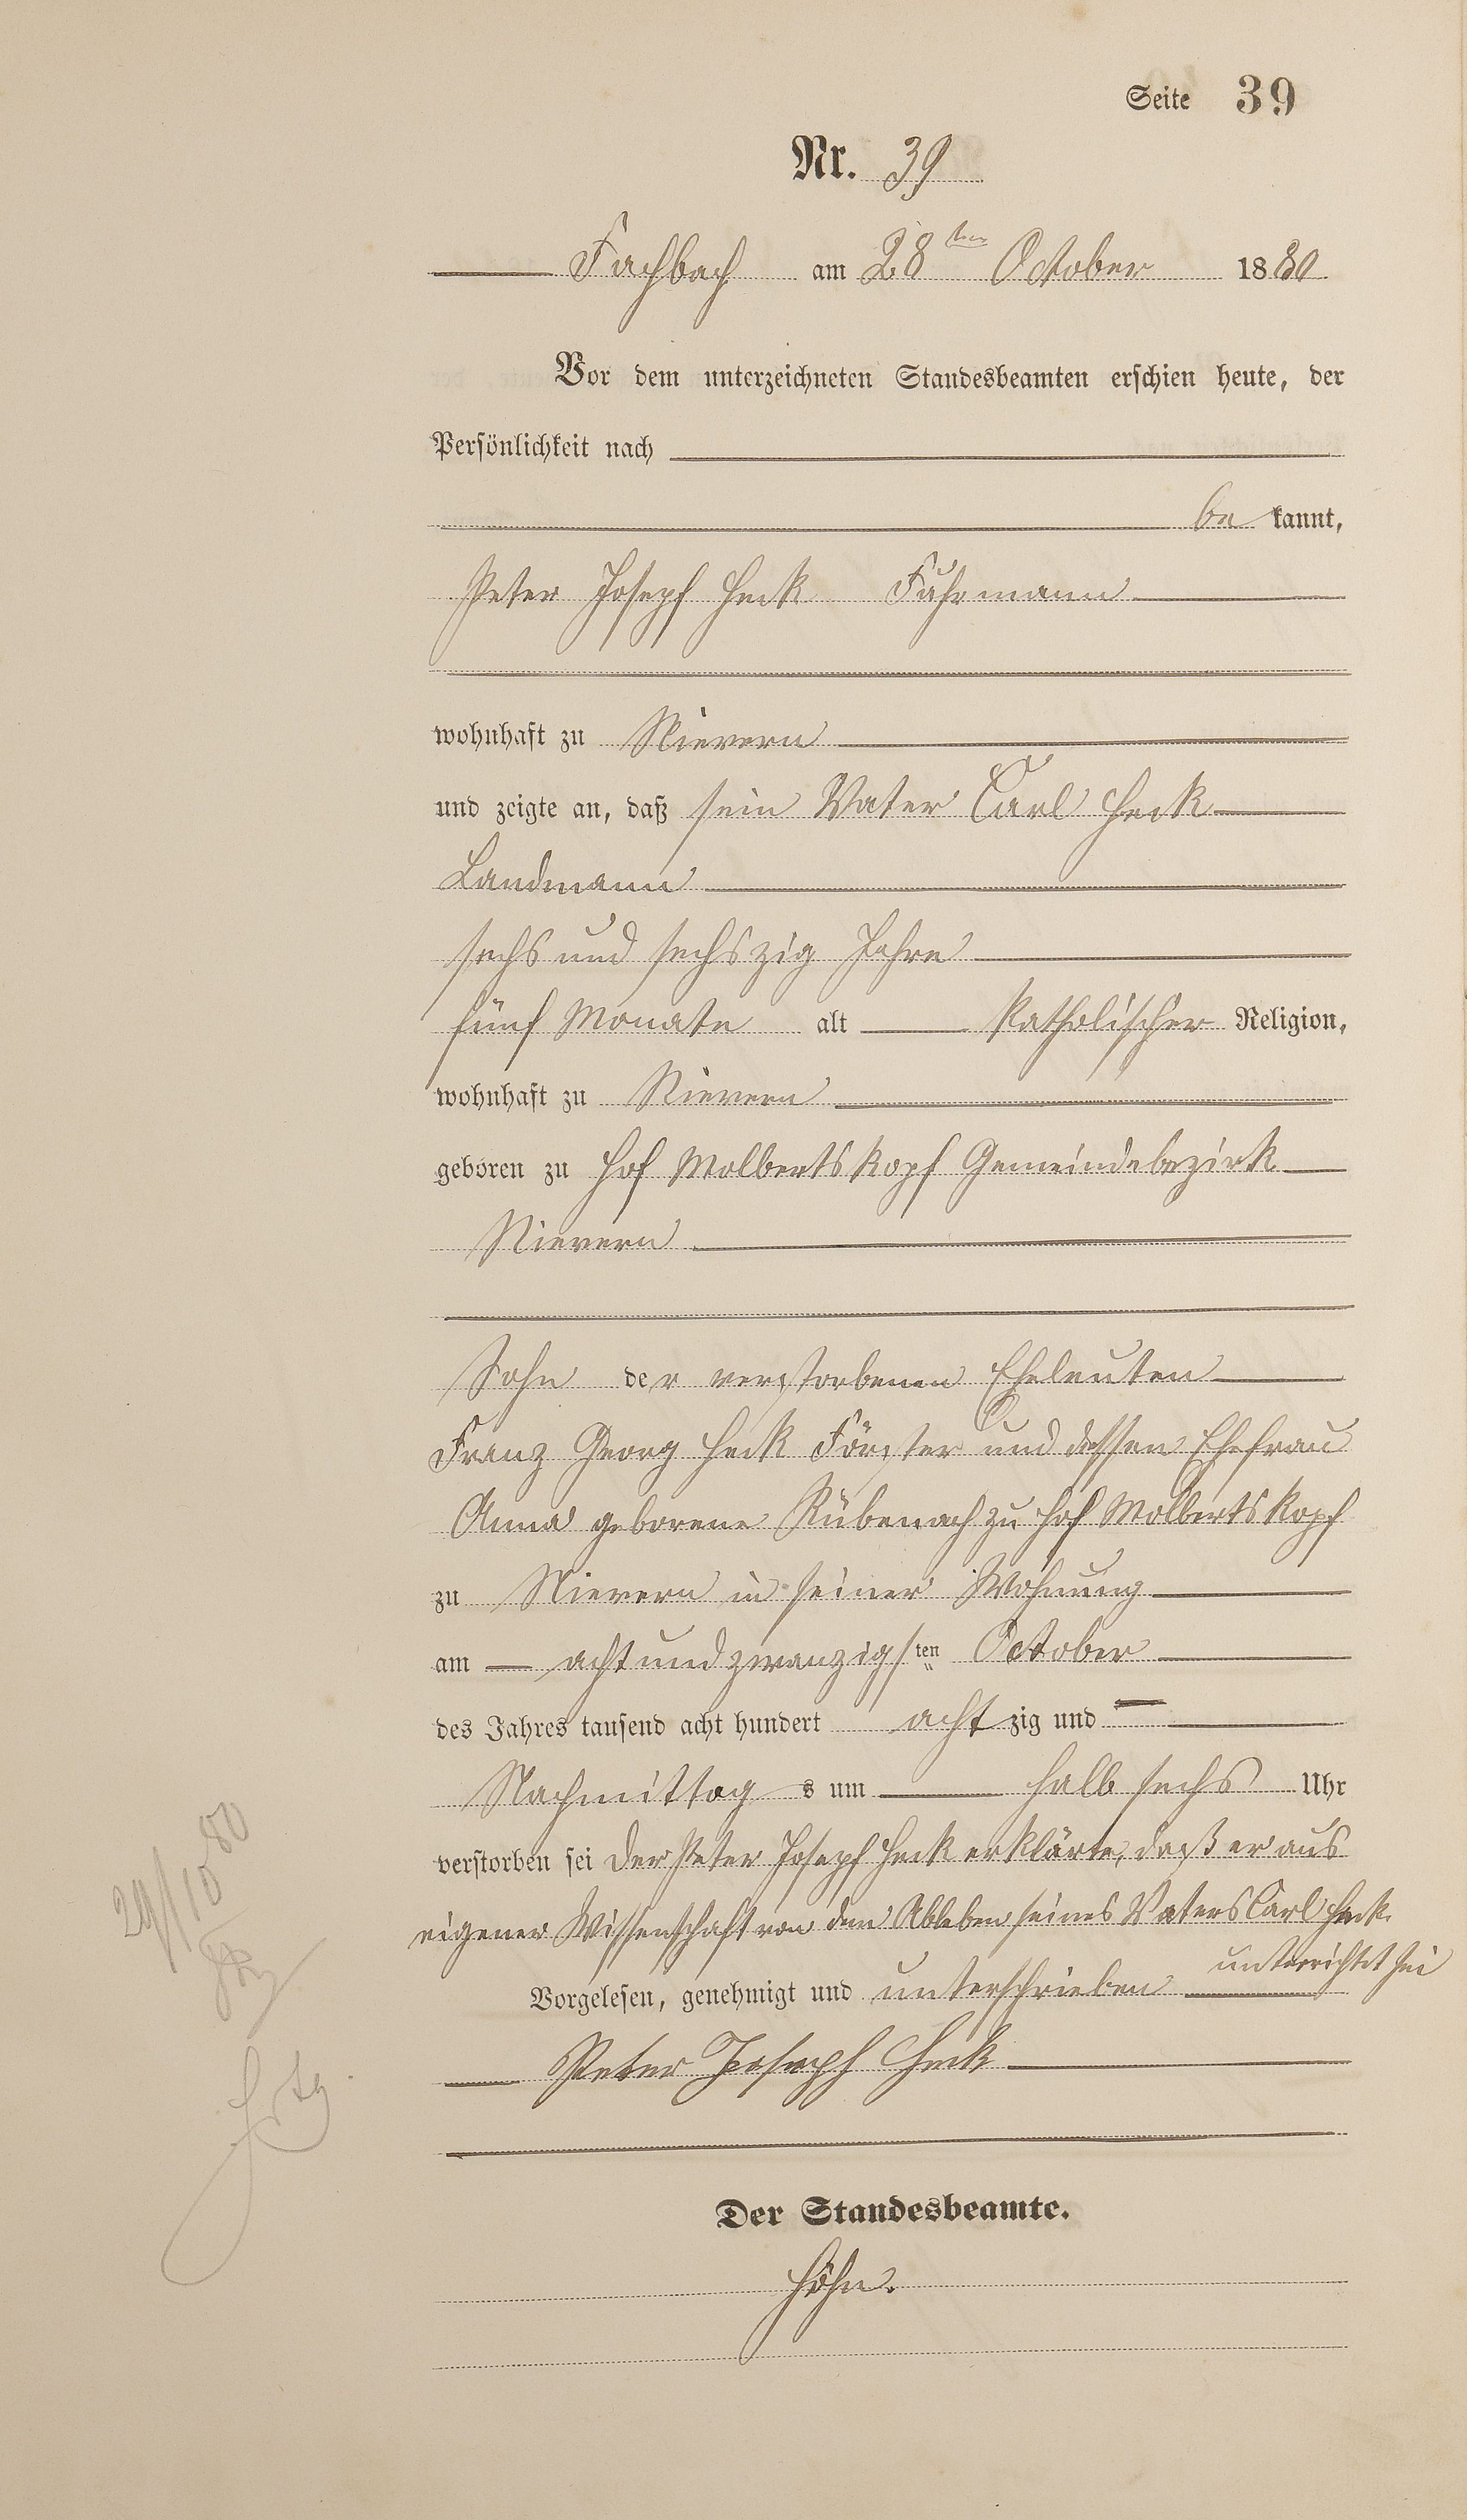 Seite 39
Nr. 39
Fachbach am 28ten October 1880
Vor dem unterzeichneten Standesbeamten erschien heute, der
Persönlichkeit nach
be kannt,
Peter Joseph Heck Fuhrmann
wohnhaft zu Nievern
und zeigte an, daß sein Vater Carl Heck
Landmann
sechs und sechszig Jahre
fünf Monate alt katholischer Religion,
wohnhaft zu Nievern
geboren zu Hof Molbertskopf Gemeindebezirk
Nievern
Sohn der verstorbenen Eheleuten
Franz Georg Heck Förster und dessen Ehefrau
Anna geborene Rübenach zu Hof Molbertskopf
zu Nievern in seiner Wohnung
am achtundzwanzigsten October
des Jahres tausend acht hundert acht zig und
Nachmittag s um halb sechs Uhr
verstorben sei Der Peter Joseph Heck erklärte, daß er aus
eigener Wissenschaft von dem Ableben seines Vaters Carl Heck
unterrichtet sei
Vorgelesen, genehmigt und unterschrieben
Peter Joseph Heck
Der Standesbeamte.
Höhn.
29/10 80